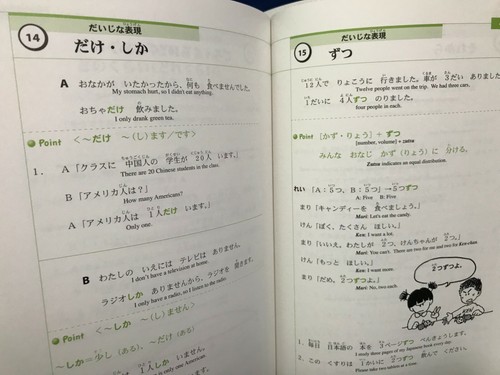 だいじな表現
14
だけ・しか
A おなかが いたかったから、何も 食べませんでした。
My stomach hurt, so I didn't eat anything.
おちゃだけ 飲みました。
I only drank green tea.
Point <〜だけ 〜(し)ます／です>
1. A「クラスに 中国人の 学生が 20人 います。」
There are 20 Chinese students in the class.
B「アメリカ人は？」
How many Americans?
A「アメリカ人は 1人だけ います。」
Only one.
B わたしの いえには テレビは ありません。
I don't have a television at home.
ラジオしか ありませんから、ラジオを 聞きます。
I only have a radio, so I listen to the radio.
Point <〜しか 〜(し)ません>
〜しか=少し(ある)、〜だけ(ある)
1人しか いません。
only one American.
だいじな表現
15
ずつ
12人で りょこうに 行きました。車が 3だい ありました
Twelve people went on the trip. We had three cars,
1だいに 4人ずつ のりました。
four people in each.
Point [かず・りょう] + ずつ
[number, volume] + ずつ
みんな おなじ かず(りょう)に 分ける。
Zutsu indicates an equal distribution.
れい 「A：5つ、B：5つ」→5つずつ
A: Five B: Five
まり「キャンディーを 食べましょう。」
Mari: Let's eat the candy.
けん「ぼく、たくさん ほしい。」
Ken: I want a lot.
まり「いいえ、わたしが 2つ、けんちゃんが 2つ。」
Mari: You can't. There are two for me and two for Ken-chan
けん「もっと ほしい。」
Ken: I want more.
まり「だめ、2つずつよ。」
Mari: No, two each.
2つずつよ。
1. 毎日 日本語の 本を 3ページずつ べんきょうします。
I study three pages of my Japanese book every day.
2. この くすりは 1かいに 2つずつ 飲んで ください。
Please take two tablets at a time.